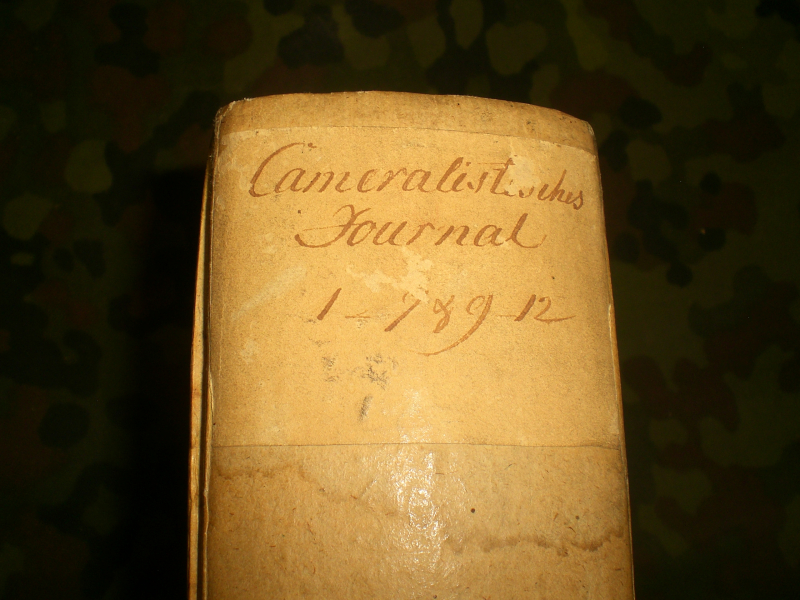 Cameralistisches
Journal
1 - 7 & 9 - 12